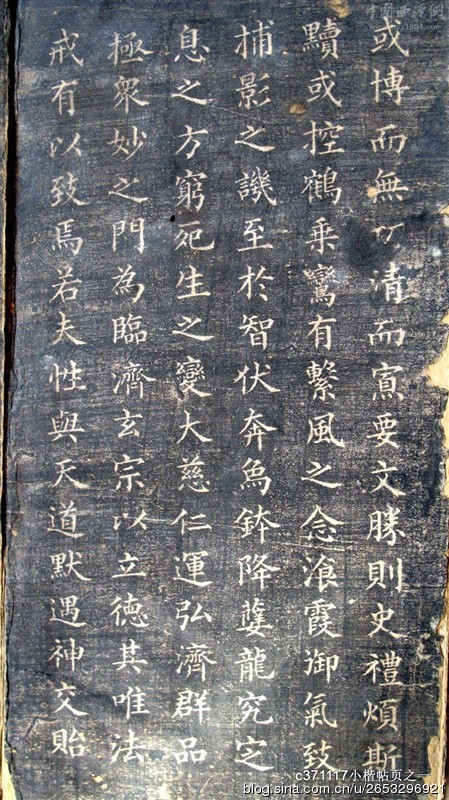 中国西泠网
或博而無功清而寡要文勝則史禮煩斯
黷或控鶴乘鸞有繫風之念飡霞御氣致
捕影之譏至於智伏奔象鉢降龍究定
息之方窮死生之變大慈仁運弘濟群品
極眾妙之門為臨濟玄宗以立德其唯法
戒有以致焉若夫性與天道默遇神交貽
c371117小楷帖页之一
blog.sina.com.cn/u/2653296921